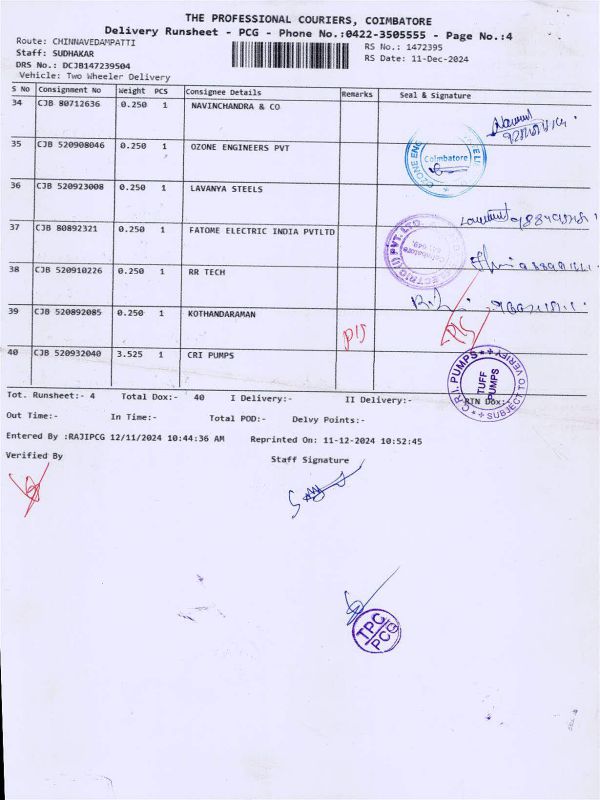 THE PROFESSIONAL COURIERS, COIMBATORE
Delivery Runsheet - PCG - Phone No.:0422-3505555 - Page No.:4
Route: CHINNAVEDAMPATTI
RS No.: 1472395
Staff: SUDHAKAR
RS Date: 11-Dec-2024
DRS No.: DCJB147239504
Vehicle: Two Wheeler Delivery
S No Consignment No Weight PCS Consignee Details Remarks Seal & Signature
34 CJB 80712636 0.250 1 NAVINCHANDRA & CO
35 CJB 520908046 0.250 1 OZONE ENGINEERS PVT
Coimbatore
36 CJB 520923008 0.250 1 LAVANYA STEELS
37 CJB 80892321 0.250 1 FATOME ELECTRIC INDIA PVTLTD
38 CJB 520910226 0.250 1 RR TECH
39 CJB 520892085 0.250 1 KOTHANDARAMAN
40 CJB 520932040 3.525 1 CRI PUMPS
C.R.I. PUMPS
TUFF PUMPS
SUBJECT TO VERIFY
Tot. Runsheet:- 4 Total Dox:- 40 I Delivery:- II Delivery:- RTN Dox:-
Out Time:- In Time:- Total POD:- Delvy Points:-
Entered By :RAJIPCG 12/11/2024 10:44:36 AM Reprinted On: 11-12-2024 10:52:45
Verified By Staff Signature
TPC
PCG